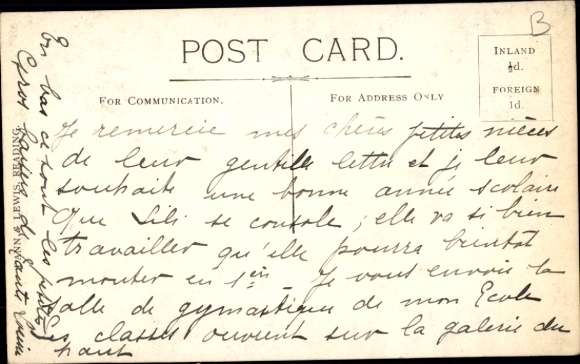 B
POST CARD.
INLAND
½d.
FOREIGN
1d.
FOR COMMUNICATION.
FOR ADDRESS ONLY
Je remercie mes chères petites nièces
de leur gentille lettre et je leur
souhaite une bonne année scolaire
Que Lili se console ; elle va si bien
travailler qu'elle pourra bientôt
monter en 1ère. Je vous envoie la
salle de gymnastique de mon Ecole
Les classes ouvrent sur la galerie du
haut
En bas ce sont les petites
Gros baisers